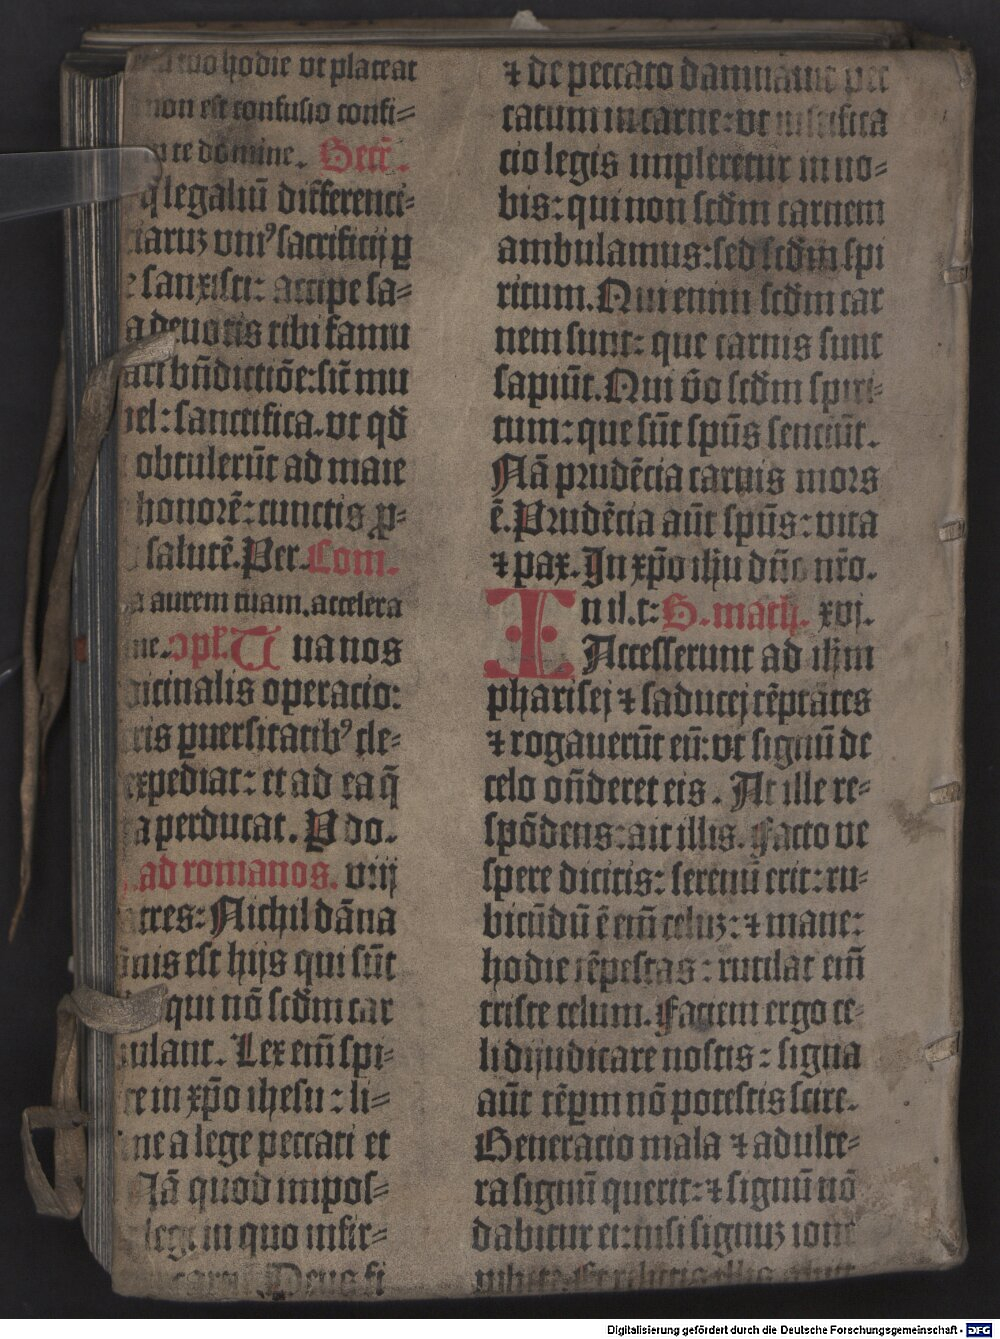 tuo hodie vt placeat
non est confusio confi=
te domine. Secr̄.
q legaliū differenci=
ciaruz vniꝰ sacrificij ꝑ
sanxisti: accipe sa=
a deuotis tibi famu
bn̄dictiōe: sic̄ mu
el: sanctifica. vt qd̄
obtulerūt ad maie
honorē: cunctis ꝓ=
salutē. Per. Com.
aurem tuam. accelera
ne. ꝯpl. Tua nos
dicinalis operacio:
ris ꝑuersitatibꝰ cle=
expediat: et ad ea q̄
a perducat. P do.
ad romanos. viij
tres: Nichil dāna
nis est hijs qui sūt
qui nō scd̄m car
ulant. Lex em̄ spi=
te in xp̄o ihesu: li=
ne a lege peccati et
Nā quod impos=
legi in quo infir=
carnē Deus fi
⁊ de peccato damnauit pec
catum in carne: vt iustifica
cio legis impleretur in no=
bis: qui non scd̄m carnem
ambulamus: sed scd̄m spi
ritum. Qui enim scd̄m car
nem sunt: que carnis sunt
sapiūt. Qui v̄o scd̄m spiri=
tum: que sūt spūs senciūt.
Nā prudēcia carnis mors
ē. Prudēcia aūt spūs: vita
⁊ pax. In xp̄o ih̄u dn̄o nr̄o.
In il. t: S. math. xvj.
Accesserunt ad ih̄m
pharisej ⁊ saducej tēptātes
⁊ rogauerūt eū: vt signū de
celo on̄deret eis. At ille re=
spōdens: ait illis. Facto ve
spere dicitis: serenū erit: ru=
bicūdū ē em̄ celuz: ⁊ mane:
hodie tēpestas: rutilat em̄
triste celum. Faciem ergo ce=
li dijudicare nostis: signa
aūt tēꝑm nō potestis scire.
Generacio mala ⁊ adulte=
ra signū querit: ⁊ signū nō
dabitur ei: nisi signuz ione
Digitalisierung gefördert durch die Deutsche Forschungsgemeinschaft - DFG